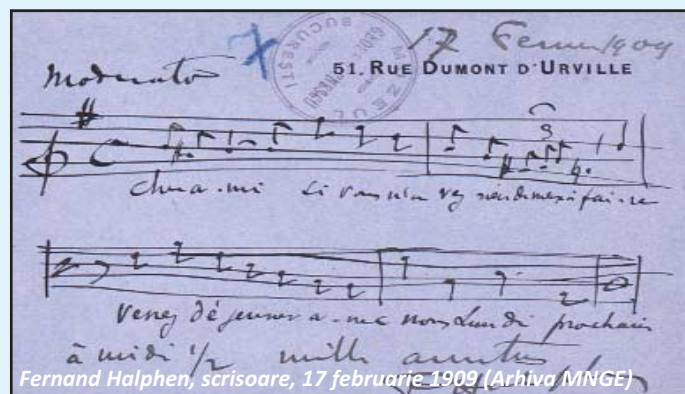 17 Fevrier 1909
51, RUE DUMONT D'URVILLE
MUZEUL
GEORGE ENESCU
BUCUREŞTI
Moderato
Cher a-mi Si vous n'a vez rien de mieux à fai-re
venez déjeuner a-vec nous Lundi prochain
à midi 1/2 mille amitiés
Fernand Halphen, scrisoare, 17 februarie 1909 (Arhiva MNGE)